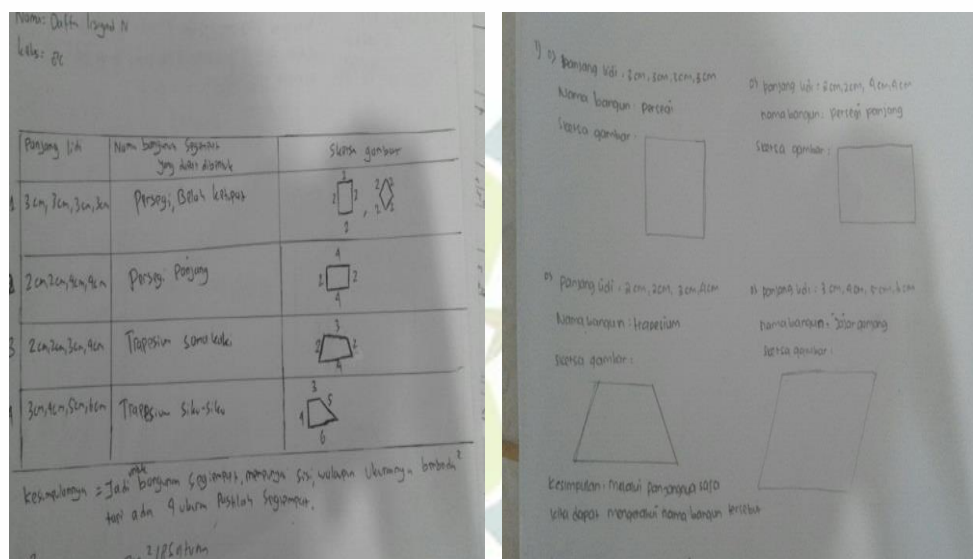 Nama: Daffa N
kelas: 8c
Panjang lidi
Nama bangun Segiempat yang dapat dibentuk
Sketsa gambar
3 cm, 3cm, 3cm, 3cm
Persegi, Belah ketupat
2 cm, 2cm, 4cm, 4cm
Persegi Panjang
2 cm, 2cm, 3cm, 4cm
Trapesium sama kaki
3
2
2
4
3cm, 4cm, 5cm, 6cm
Trapesium siku-siku
3
4
5
6
kesimpulannya = Jadi untuk bangunan segiempat, mempunyai sisi, walaupun ukurannya berbeda²
tapi ada 4 ukuran Pastilah segiempat.
1) a) Panjang lidi : 3 cm, 3cm, 3cm, 3cm
Nama bangun : persegi
Sketsa gambar :
Panjang lidi : 2cm, 2cm, 4cm, 4cm
nama bangun : persegi panjang
Sketsa gambar :
Panjang lidi : 2cm, 2cm, 3cm, 4cm
Nama bangun : trapesium
Sketsa gambar :
Panjang lidi : 3cm, 4cm, 5cm, 6cm
nama bangun : Jajar genjang
Sketsa gambar :
kesimpulan : melalui panjangnya saja
kita dapat mengetahui nama bangun tersebut